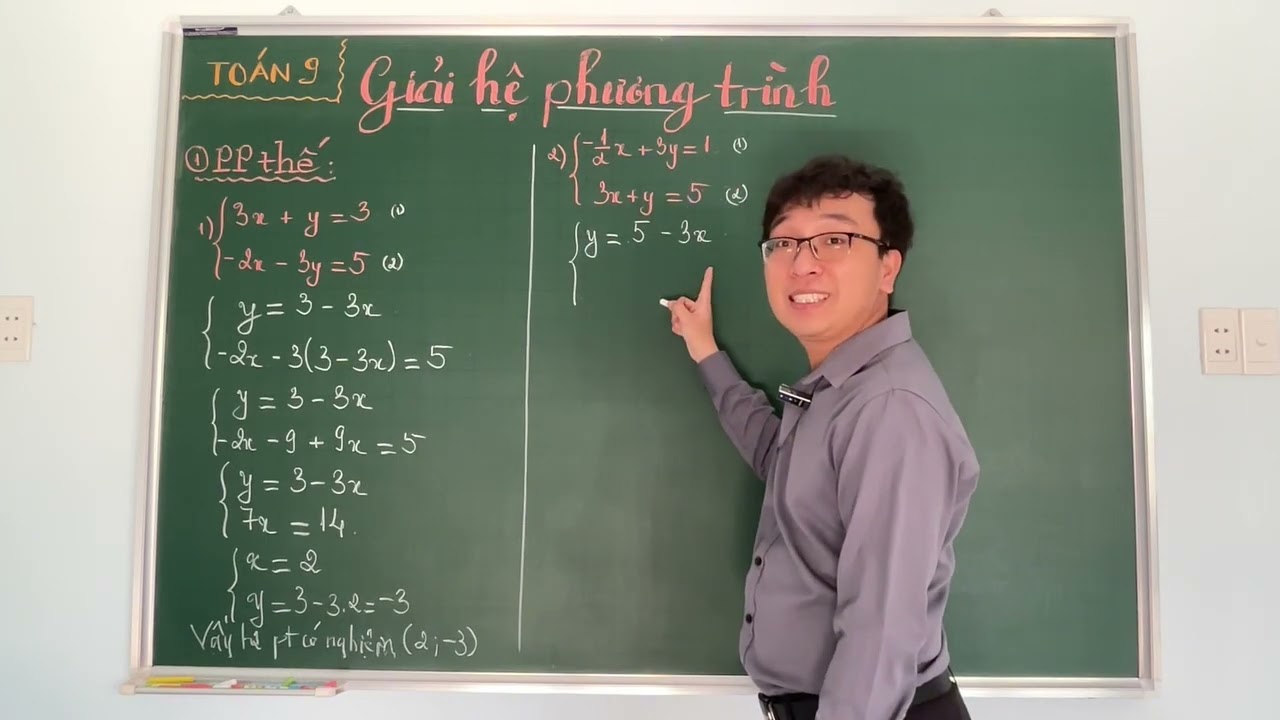 TOÁN 9
Giải hệ phương trình
① PP thế:
1) { 3x + y = 3 (1)
-2x - 3y = 5 (2)
{ y = 3 - 3x
-2x - 3(3 - 3x) = 5
{ y = 3 - 3x
-2x - 9 + 9x = 5
{ y = 3 - 3x
7x = 14
{ x = 2
y = 3 - 3.2 = -3
Vậy hệ pt có nghiệm (2; -3)
2) { -1/2x + 3y = 1 (1)
3x + y = 5 (2)
{ y = 5 - 3x